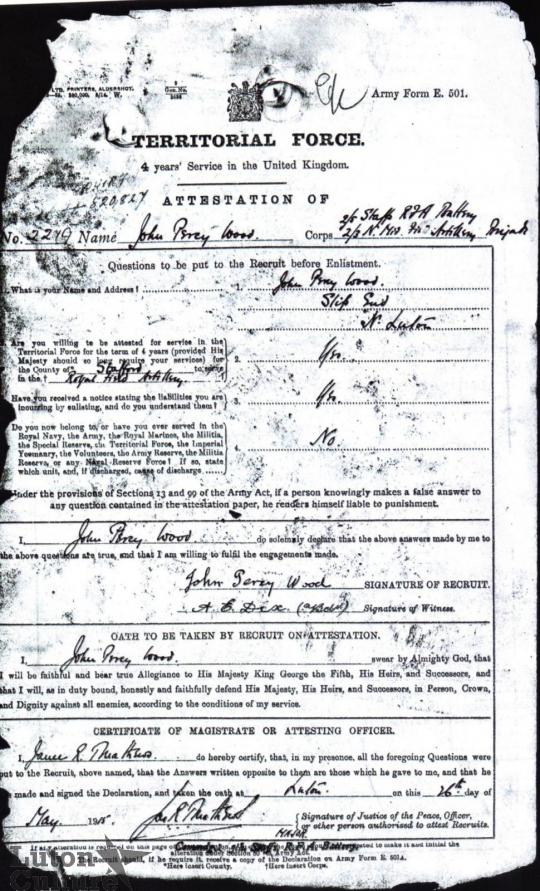 LTD. PRINTERS, ALDERSHOT.
Army Form E. 501.
TERRITORIAL FORCE.
4 years' Service in the United Kingdom.
ATTESTATION OF
No. 2279 Name John Percy Wood. Corps
Questions to be put to the Recruit before Enlistment.
What is your Name and Address? 1. John Percy Wood.
Slip End
Nr. Luton
Are you willing to be attested for service in the
Territorial Force for the term of 4 years (provided His
Majesty should so long require your services) for
the County of* Stafford to serve
in the† Royal Field Artillery.
2. Yes.
Have you received a notice stating the liabilities you are
incurring by enlisting, and do you understand them?
3. Yes.
Do you now belong to, or have you ever served in the
Royal Navy, the Army, the Royal Marines, the Militia,
the Special Reserve, the Territorial Force, the Imperial
Yeomanry, the Volunteers, the Army Reserve, the Militia
Reserve, or any Naval Reserve Force? If so, state
which unit, and, if discharged, cause of discharge
4. No
Under the provisions of Sections 13 and 99 of the Army Act, if a person knowingly makes a false answer to
any question contained in the attestation paper, he renders himself liable to punishment.
I, John Percy Wood do solemnly declare that the above answers made by me to
the above questions are true, and that I am willing to fulfil the engagements made.
John Percy Wood SIGNATURE OF RECRUIT.
A. E. Dix. Signature of Witness.
OATH TO BE TAKEN BY RECRUIT ON ATTESTATION.
I, John Percy Wood. swear by Almighty God, that
I will be faithful and bear true Allegiance to His Majesty King George the Fifth, His Heirs, and Successors, and
that I will, as in duty bound, honestly and faithfully defend His Majesty, His Heirs, and Successors, in Person, Crown,
and Dignity against all enemies, according to the conditions of my service.
CERTIFICATE OF MAGISTRATE OR ATTESTING OFFICER.
I, do hereby certify, that, in my presence, all the foregoing Questions were
put to the Recruit, above named, that the Answers written opposite to them are those which he gave to me, and that he
made and signed the Declaration, and taken the oath at Luton on this 26th day of
May 1915.
Signature of Justice of the Peace, Officer,
or other person authorised to attest Recruits.
MAJOR
R.F.A. Battery
the Recruit should, if he require it, receive a copy of the Declaration on Army Form E. 501A.
*Here insert County. †Here insert Corps.
Luton
Culture